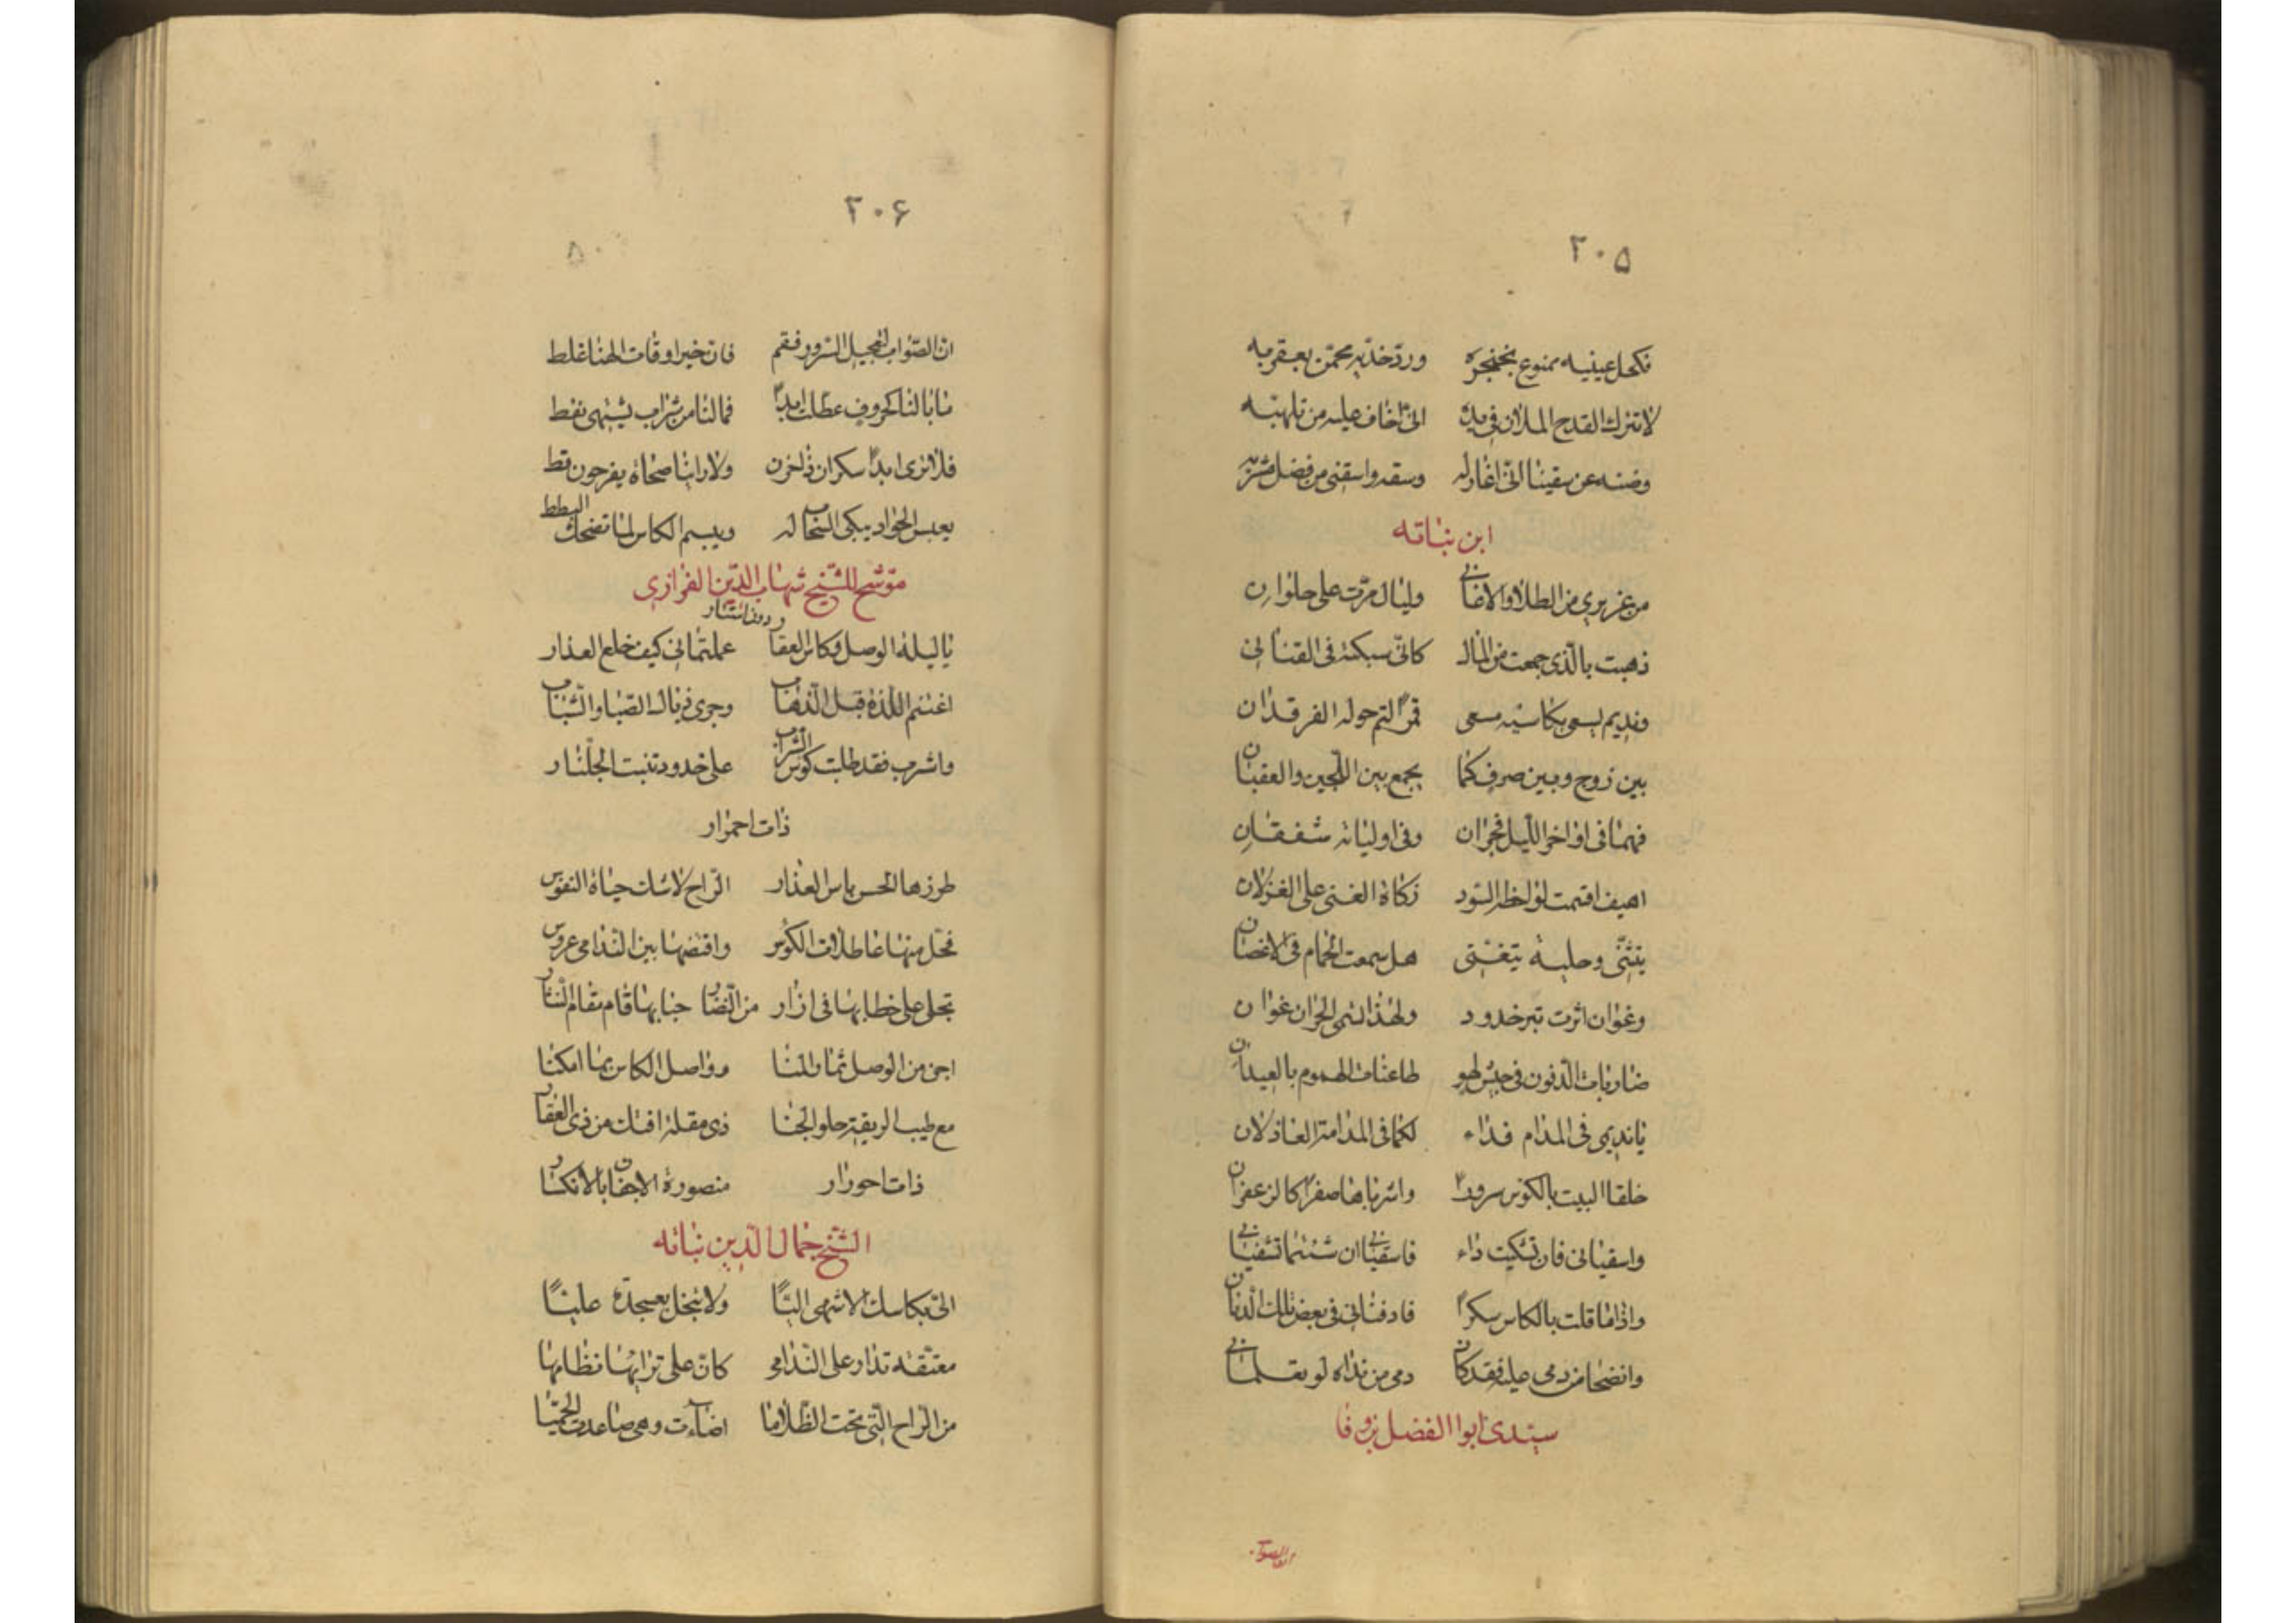 ۲۰۵
فكحل عينيه ممنوع بخنجره ورد خديه محمى بعقربه
لا تترك القدح الملان فى يده انى اخاف عليه من تلهبه
وصنه عن سقينا انى اغار له وسقه واسقنى من فضل مشربه
ابن نباته
من عزيرى من الطلا والاغانى وليال مرّت على حلوان
ذهبت بالّذى جمعت من المال كانّى سبكته فى القنانى
ونديم يسعى بكاسيه مسعى قمر التم حوله الفرقدان
بين زوج وبين صرف كما يجمع بين اللّجين والعقيان
فهما فى اواخر اللّيل فجران وفى اوليانه شفقان
اهيف اقتمت لواحظه السّود زكاة الغنى على الغزلان
يتثنّى وحليه يتغنّى هل سمعت الحمام فى الاغصان
وغوان اثرت تبر خدود ولهذا تسمى الحزان غوان
ضاربات الدّفوف فى جيش لهو طاعنات الهموم بالعيدان
يا نديمى فى المدام فداء لكما فى المدامة العاذلان
خلقا البيت بالكؤس سرورا واشرباها صفرا كالزعفران
واسقيانى فان تشكيت داء فاسقيانى ان شئتما تشفيانى
واذا ما قلت بالكاس سكرا فادفنانى فى بعض تلك الدنان
وانضحا من دمى عليه فقد كان دمى من نداه لو تعلمانى
سيّدى ابوا الفضل بن وفا
انّ الصواب
۲۰۶
انّ الصّواب لتعجيل السّرور فقم فان تاخير اوقات الهنا غلط
ما بالنا كحروف عطلت ابدا فما لنا من شراب يشتهى نقط
فلا ترى ابدا سكران ذا حزن ولا راينا صحاة يفرحون قط
يعبس الجواد يبكى السحاب له ويبسم الكاس لما تضحك البطط
موشّح للشّيخ شهاب الدّين الغزازى
يا ليلة الوصل وكاس العقار دون استتار علمتمانى كيف خلع العذار
اغتنم اللّذة قبل الذّهاب وجرى ذيال الصّبا والشّباب
واشرب فقد طابت كؤس الشراب على خدود تنبت الجلّنار
ذات احمرار
طرزها الحسن باس العذار الرّاح لا شك حياة النفوس
فحلّ منها عاطلات الكؤس واقتضها بين النّدامى عروس
تجلى على خطابها فى ازار من النّضار حبابها قام مقام النّثار
اجن من الوصل ثمار المنا وواصل الكاس بما امكنا
مع طيب الريقة حلو الجنا ذى مقلة افتك من ذى الفقار
ذات احورار منصورة الاجفان بالانكسار
الشّيخ جمال الدّين نباته
الىّ بكاسك الاشهى اليّا ولا تبخل بعسجدة عليّا
معتّقه تدار على النّدامى كانّ على ترايبها نظامها
من الرّاح الّتى تحت الظّلاما اضاءت وهى صاعدت الحميّا